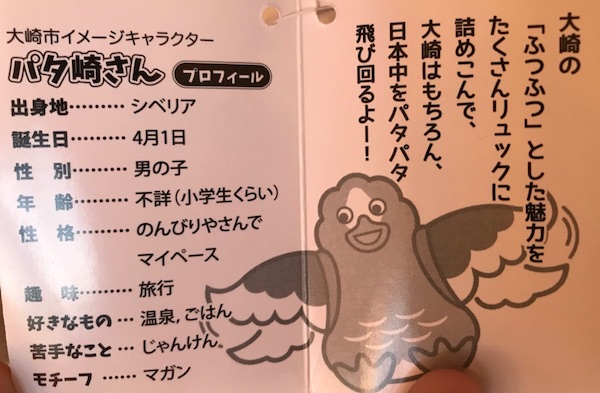 大崎市イメージキャラクター
パタ崎さん プロフィール
出身地……… シベリア
誕生日……… 4月1日
性　別……… 男の子
年　齢……… 不詳（小学生くらい）
性　格……… のんびりやさんで
マイペース
趣　味……… 旅行
好きなもの … 温泉,ごはん
苦手なこと … じゃんけん
モチーフ …… マガン
大崎の
「ふつふつ」とした魅力を
たくさんリュックに
詰めこんで、
大崎はもちろん、
日本中をパタパタ
飛び回るよー！